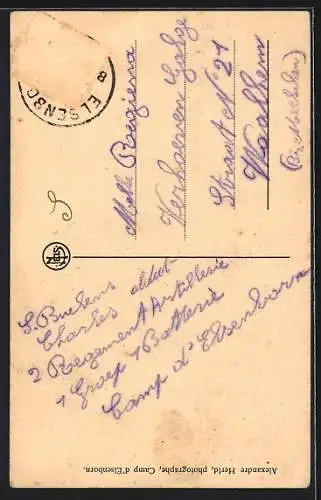 ELSENBO
8
Melle Regiena
Verhaeven Galge
Straat No 21
Waelhem
(Bij Mechelen)
S. Buekens
Charles
2 Regement Artillerie
1 Groep 1 Batterie
Camp d'Elsenborn
Alexandre Herld, photographe, Camp d'Elsenborn.